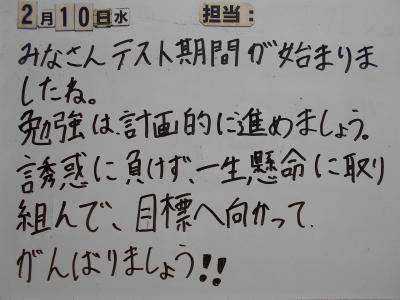 2月10日水 担当:
みなさんテスト期間が始まりま
したね。
勉強は計画的に進めましょう。
誘惑に負けず、一生懸命に取り
組んで、目標へ向かって
がんばりましょう!!